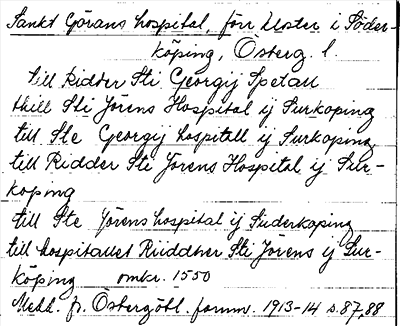 Sankt Görans hospital, förr kloster i Söder-
köping, Österg. l.
till Ridder Sti Georgij Spetall
thill Sti Jörens Hospital ij Surkoping
till Ste Georgij hospitall ij Surkoping
till Ridder Sti Jorens Hospital ij Sur-
koping
till Ste Jörens hospital ij Suderkoping
till hospitallet Riiddher Sti Jörens ij Sur-
köping omkr. 1550
Medd. fr. Östergötl. fornm. 1913-14 s. 87, 88